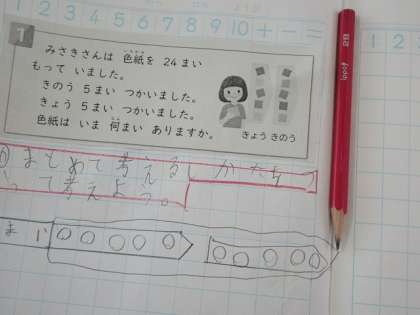 1 2 3 4 5 6 7 8 9 10 + − =
1 2
1
みさきさんは 色紙を 24 まい
もって いました。
きのう 5 まい つかいました。
きょう 5 まい つかいました。
色紙は いま 何まい ありますか。
きょう きのう
まとめて考える かたち
って考えよう。
2B